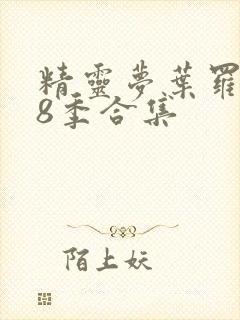 精靈夢葉羅
8季合集
陌上妖